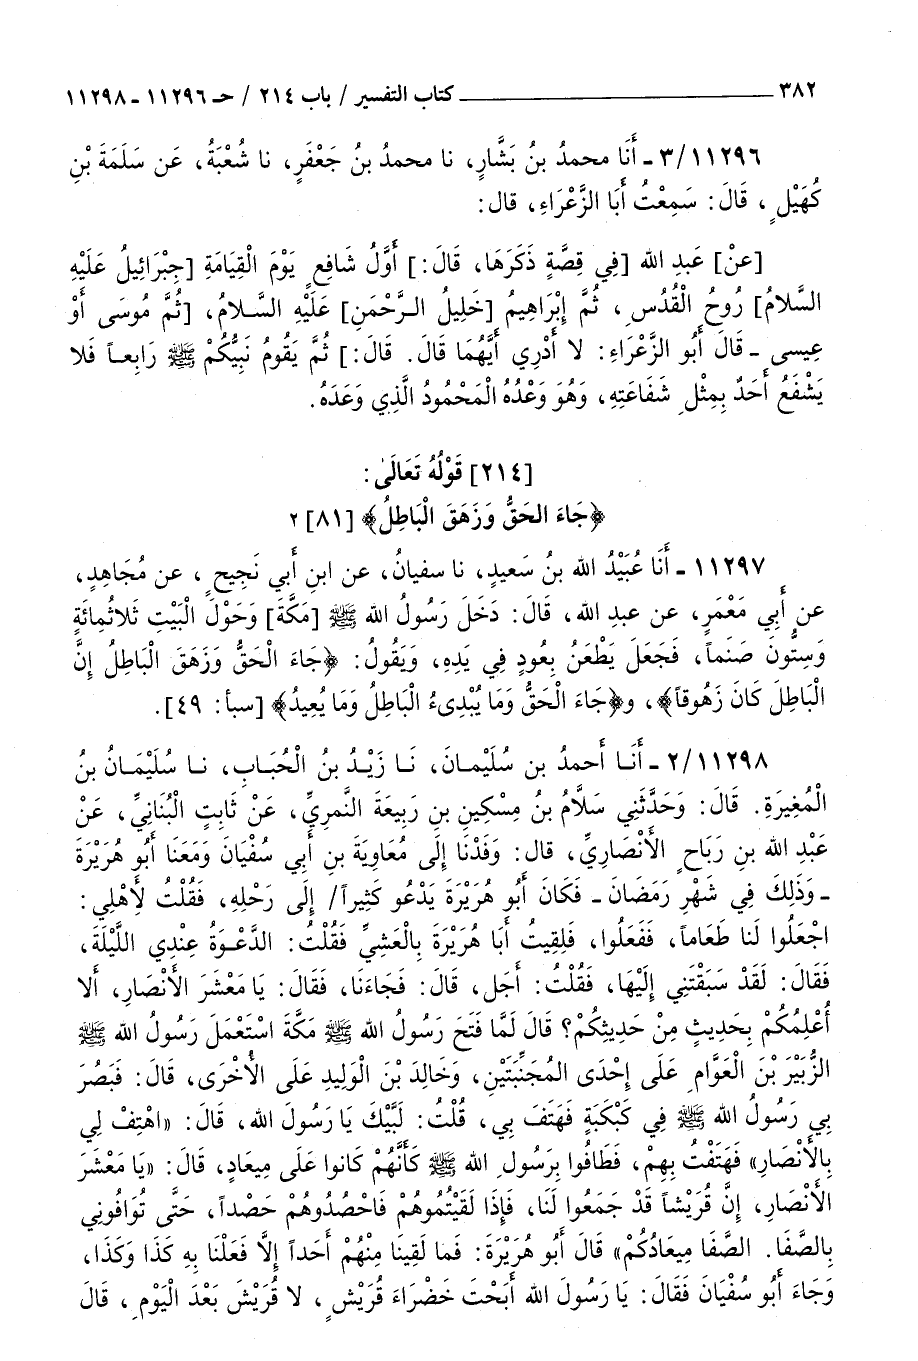 ٣٨٢ ــــــــــــــــــــــــ كتاب التفسير / باب ٢١٤ / حـ ١١٢٩٦ - ١١٢٩٨
٣/١١٢٩٦ ـ أَنَا محمدُ بنُ بَشَّارٍ، نا محمدُ بنُ جَعْفَرٍ، نا شُعْبَةُ، عَن سَلَمَةَ بْنِ
كُهَيْلٍ، قَالَ: سَمِعْتُ أَبَا الزَّعْرَاءِ، قال:
[عنْ] عَبدِ الله [فِي قِصَّةٍ ذَكَرَهَا، قَالَ:] أَوَّلُ شَافِعٍ يَوْمَ الْقِيَامَةِ [جِبْرَائِيلُ عَلَيْهِ
السَّلامُ] رُوحُ الْقُدُسِ، ثُمَّ إِبْرَاهِيمُ [خَلِيلُ الرَّحْمَنِ] عَلَيْهِ السَّلامُ، [ثُمَّ مُوسَى أَوْ
عِيسى ـ قَالَ أَبُو الزَّعْرَاءِ: لا أَدْرِي أَيَّهُمَا قَالَ. قَالَ:] ثُمَّ يَقُومُ نَبِيُّكُمْ ﷺ رَابِعاً فَلا
يَشْفَعُ أَحَدٌ بِمِثْلِ شَفَاعَتِهِ، وَهُوَ وَعْدُهُ الْمَحْمُودُ الَّذِي وَعَدَهُ.
[٢١٤] قَوْلُهُ تَعَالَىٰ:
﴿جَاءَ الحَقُّ وَزَهَقَ الْبَاطِلُ﴾ [٨١] ٢
١١٢٩٧ ـ أَنَا عُبَيْدُ الله بنُ سَعِيدٍ، نا سفيانُ، عن ابنِ أبي نَجِيحٍ، عن مُجَاهِدٍ،
عن أَبِي مَعْمَرٍ، عن عبدِ الله، قَالَ: دَخَلَ رَسُولُ الله ﷺ [مَكَّةَ] وَحَوْلَ الْبَيْتِ ثَلاثُمائَةٍ
وَسِتُّونَ صَنَماً، فَجَعَلَ يَطْعَنُ بِعُودٍ فِي يَدِهِ، وَيَقُولُ: ﴿جَاءَ الْحَقُّ وَزَهَقَ الْبَاطِلُ إِنَّ
الْبَاطِلَ كَانَ زَهُوقاً﴾، و﴿جَاءَ الْحَقُّ وَمَا يُبْدِىءُ الْبَاطِلُ وَمَا يُعِيدُ﴾ [سبأ: ٤٩].
٢/١١٢٩٨ ـ أَنَا أَحمدُ بن سُلَيْمانَ، نَا زَيْدُ بنُ الْحُبَابِ، نا سُلَيْمَانُ بنُ
الْمُغِيرَةِ. قَالَ: وَحَدَّثَنِي سَلاَّمُ بنُ مِسْكِينِ بنِ رَبِيعَةَ النَّمرِيِّ، عَنْ ثَابِتٍ الْبُنَانِيِّ، عَنْ
عَبْدِ الله بنِ رَبَاحٍ الأَنْصَارِيِّ، قال: وَفَدْنَا إِلَى مُعَاوِيَةَ بنِ أَبِي سُفْيَانَ وَمَعَنَا أَبُو هُرَيْرَةَ
ـ وَذَلِكَ فِي شَهْرِ رَمَضَانَ ـ فَكَانَ أَبُو هُرَيْرَةَ يَدْعُو كَثِيراً/ إِلَى رَحْلِهِ، فَقُلْتُ لأَهْلِي:
اجْعَلُوا لَنا طَعَاماً، فَفَعَلُوا، فَلِقِيتُ أَبَا هُرَيْرَةَ بِالْعَشِيِّ فَقُلْتُ: الدَّعْوَةُ عِنْدِي اللَّيْلَةَ،
فَقَالَ: لَقَدْ سَبَقْتَنِي إِلَيْهَا، فَقُلْتُ: أَجَل، قَالَ: فَجَاءَنَا، فَقَالَ: يَا مَعْشَرَ الأَنْصَارِ، أَلا
أُعْلِمُكُمْ بِحَدِيثٍ مِنْ حَدِيثِكُمْ؟ قَالَ لَمَّا فَتَحَ رَسُولُ الله ﷺ مَكَّةَ اسْتَعْمَلَ رَسُولُ الله ﷺ
الزُّبَيْرَ بْنَ الْعَوَّامِ عَلَى إِحْدَى المُجَنِّبَتَيْنِ، وَخَالِدَ بْنَ الْوَلِيدِ عَلَى الأُخْرَى، قَالَ: فَبَصُرَ
بِي رَسُولُ الله ﷺ فِي كَبْكَبَةٍ فَهَتَفَ بِي، قُلْتُ: لَبَّيْكَ يَا رَسُولَ الله، قَالَ: «اهْتِفْ لِي
بِالأَنْصَارِ» فَهَتَفْتُ بِهِمْ، فَطَافُوا بِرَسُولِ الله ﷺ كَأَنَّهُمْ كَانُوا عَلَى مِيعَادٍ، قَالَ: «يَا مَعْشَرَ
الأَنْصَارِ، إِنَّ قُرَيْشاً قَدْ جَمَعُوا لَنَا، فَإِذَا لَقِيتُمُوهُمْ فَاحْصُدُوهُمْ حَصْداً، حَتَّى تُوَافُونِي
بِالصَّفَا. الصَّفَا مِيعَادُكُمْ» قَالَ أَبُو هُرَيْرَةَ: فَما لَقِينَا مِنْهُمْ أَحَداً إِلَّا فَعَلْنَا بِهِ كَذَا وَكَذَا،
وَجَاءَ أَبُو سُفْيَانَ فَقَالَ: يَا رَسُولَ الله أَبَحْتَ خَضْرَاءَ قُرَيْشٍ، لا قُرَيْشَ بَعْدَ الْيَوْمِ، قَالَ